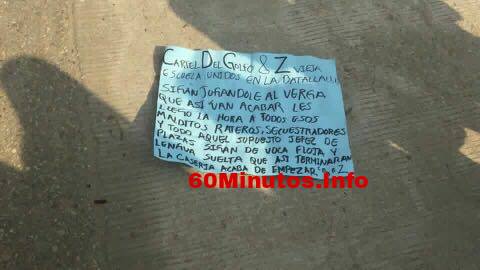 CARTEL DEL GOLFO & Z VIEJA
ESCUELA UNIDOS EN LA BATALLA!!!
SIGAN JUGANDOLE AL VERGA
QUE ASI VAN ACABAR LES
LLEGO LA HORA A TODOS ESOS
MALDITOS RATEROS, SECUESTRADORES
Y TODO AQUEL SUPUESTO JEFEZ DE
PLAZAS SIGAN DE VOCA FLOTA Y
LENGUA SUELTA QUE ASI TERMINARAN
LA CASERIA ACABA DE EMPEZAR
60Minutos.Info